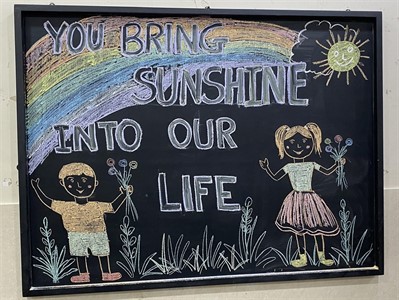 YOU BRING
SUNSHINE
INTO OUR
LIFE